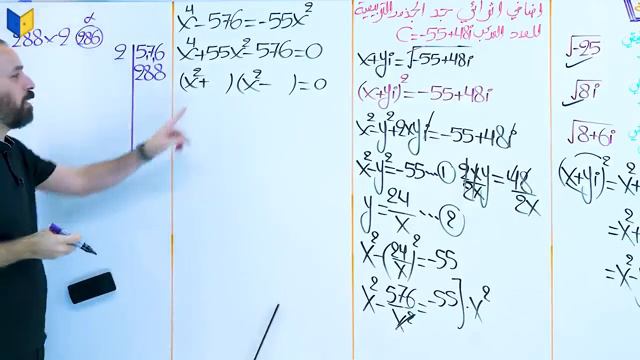 α
288×2 286
2 | 576
288
x⁴-576=-55x²
x⁴+55x²-576=0
(x²+   )(x²-   )=0
جد الجذور التربيعية
C=-55+48i
x+yi=√-55+48i
(x+yi)²=-55+48i
x²-y²+2xyi=-55+48i
x²-y²=-55...① 2xy/2x=48/2x
y=24/x...②
x²-(24/x)²=-55
x²-576/x²=-55].x²
√-25
√8i
√8+6i
(x+yi)²=x²+
=x²+
=x²-